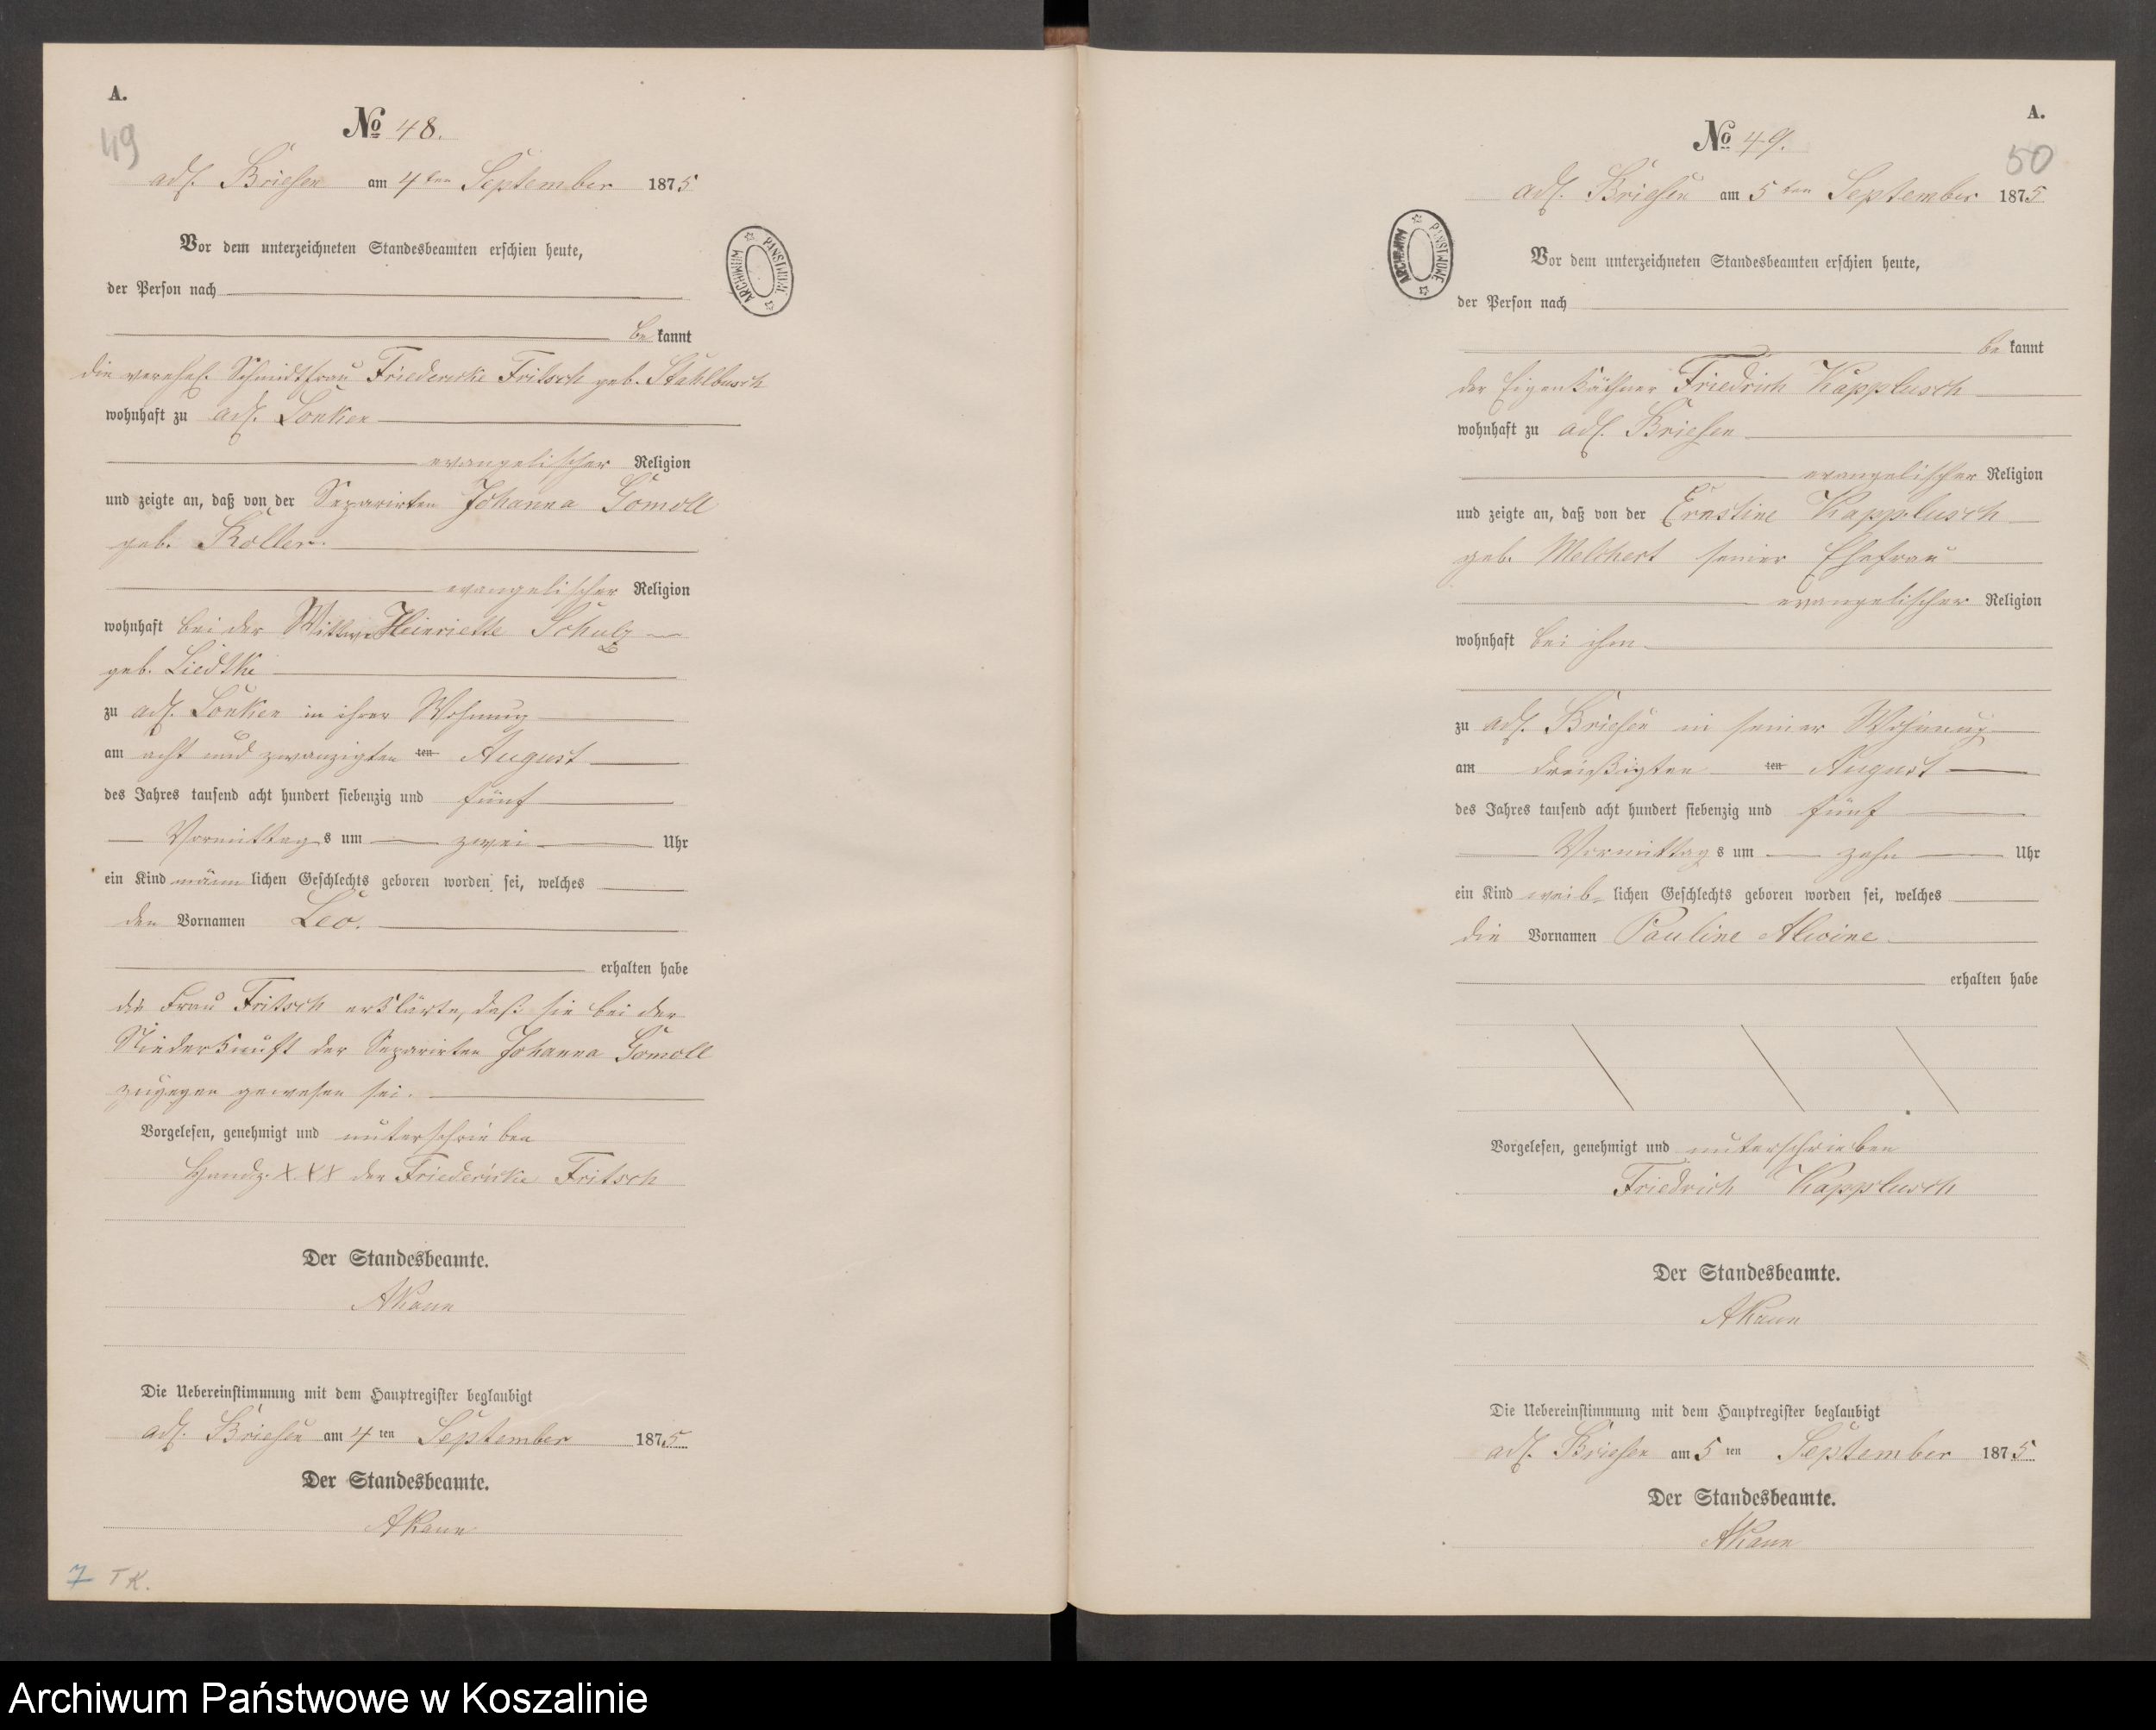 A.
49
No 48.
adl. Briesen am 4ten September 1875
Vor dem unterzeichneten Standesbeamten erschien heute,
der Person nach
be kannt
die verehel. Schmidtfrau Friedericke Fritsch geb. Stahlbusch
wohnhaft zu adl. Lonken
evangelischer Religion
und zeigte an, daß von der Separirten Johanna Gomoll
geb. Koller.
evangelischer Religion
wohnhaft bei der Wittwe Heinriette Schulz
geb. Liedtke
zu adl. Lonken in ihrer Wohnung
am acht und zwanzigten ten August
des Jahres tausend acht hundert siebenzig und fünf
Vormittag s um zwei Uhr
ein Kind männ lichen Geschlechts geboren worden sei, welches
den Vornamen Leo.
erhalten habe
die Frau Fritsch erklärte, daß sie bei der
Niederkunft der Separirten Johanna Gomoll
zugegen gewesen sei.
Vorgelesen, genehmigt und unterschrieben
Handz. XXX der Friedericke Fritsch
Der Standesbeamte.
AKann
Die Uebereinstimmung mit dem Hauptregister beglaubigt
adl. Briesen am 4 ten September 1875
Der Standesbeamte.
AKann
7 TK.
ARCHIWUM PAŃSTWOWE
A.
50
No 49.
adl. Briesen am 5ten September 1875
ARCHIWUM PAŃSTWOWE
Vor dem unterzeichneten Standesbeamten erschien heute,
der Person nach
be kannt
der Eigenkäthner Friedrich Kapplusch
wohnhaft zu adl. Briesen
evangelischer Religion
und zeigte an, daß von der Ernstine Kapplusch
geb. Melchert seiner Ehefrau
evangelischer Religion
wohnhaft bei ihm
zu adl. Briesen in seiner Wohnung
am dreißigten ten August
des Jahres tausend acht hundert siebenzig und fünf
Vormittag s um zehn Uhr
ein Kind weib- lichen Geschlechts geboren worden sei, welches
die Vornamen Pauline Alwine
erhalten habe
Vorgelesen, genehmigt und unterschrieben
Friedrich Kapplusch
Der Standesbeamte.
AKann
Die Uebereinstimmung mit dem Hauptregister beglaubigt
adl. Briesen am 5 ten September 1875
Der Standesbeamte.
AKann
Archiwum Państwowe w Koszalinie